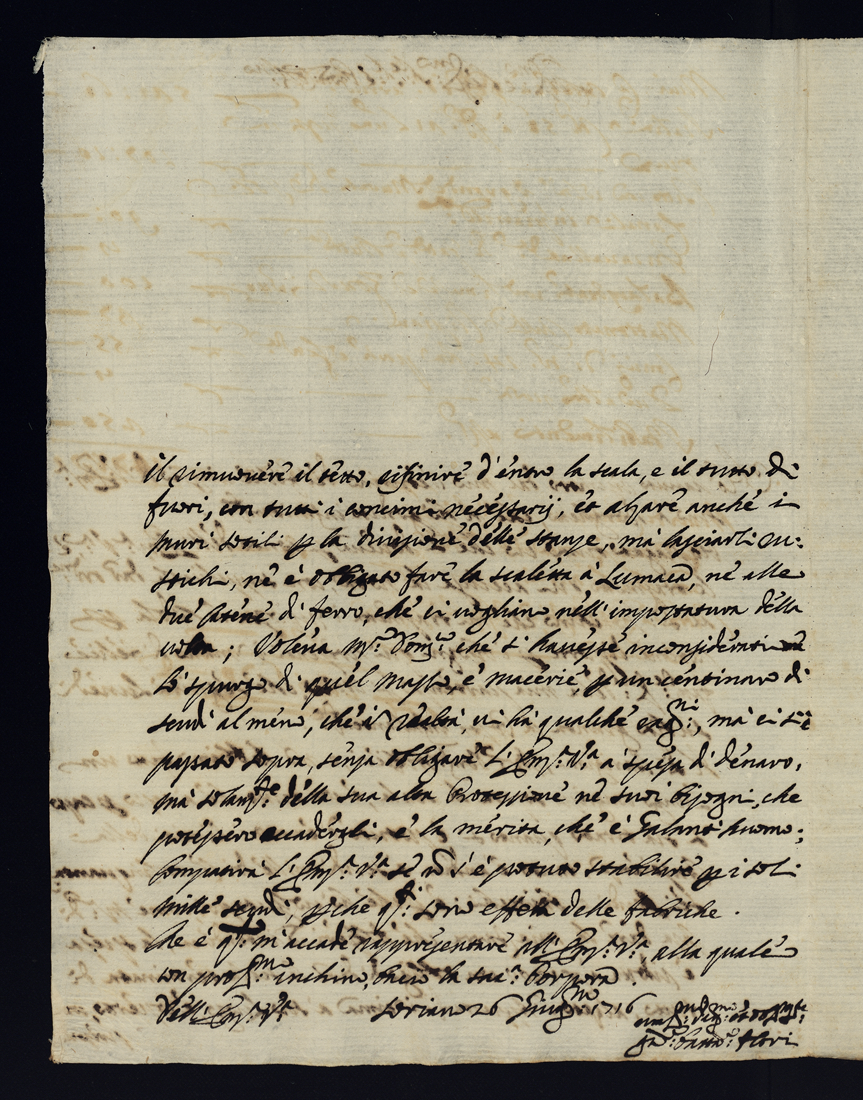 il rimuovere il tetto, rifinire d'entro la scala, e il tutto di
fuori, con tutti i concimi necessarij, et alzare anche i
muri sotili p la divisione delle stanze, mà lasciarli ru:
stichi, ne è obligato fare la scaletta à Lumaca, ne alle
due catene di ferro, che ci voglino nell'impostatura della
volta; Voleva Mr: Dom:co che si havesse in consideratione
lo spurgo di quel masso, e macerie p un centinaro di
scudi al meno, che in realtà, vi hà qualche rag:ni, mà ci si è
passato sopra, senza obligare L'Em: V:a à spesa di denaro,
mà solam:te della sua alta Protezzione ne suoi bisogni, che
potessero accadergli, e la merita, che è Galant'huomo;
Compatirà L'Em: V:a se n s'è potuto stabilire p i soli
mille scudi, p che q:ti sono effetti delle fabriche.
Che è q:to m'accade rappresentare all'Em: V:a, alla quale
con prof:mo inchino, bacio la sac:a Porpora.
Dell'Em: V:a Soriano 26 Giug:no 1716